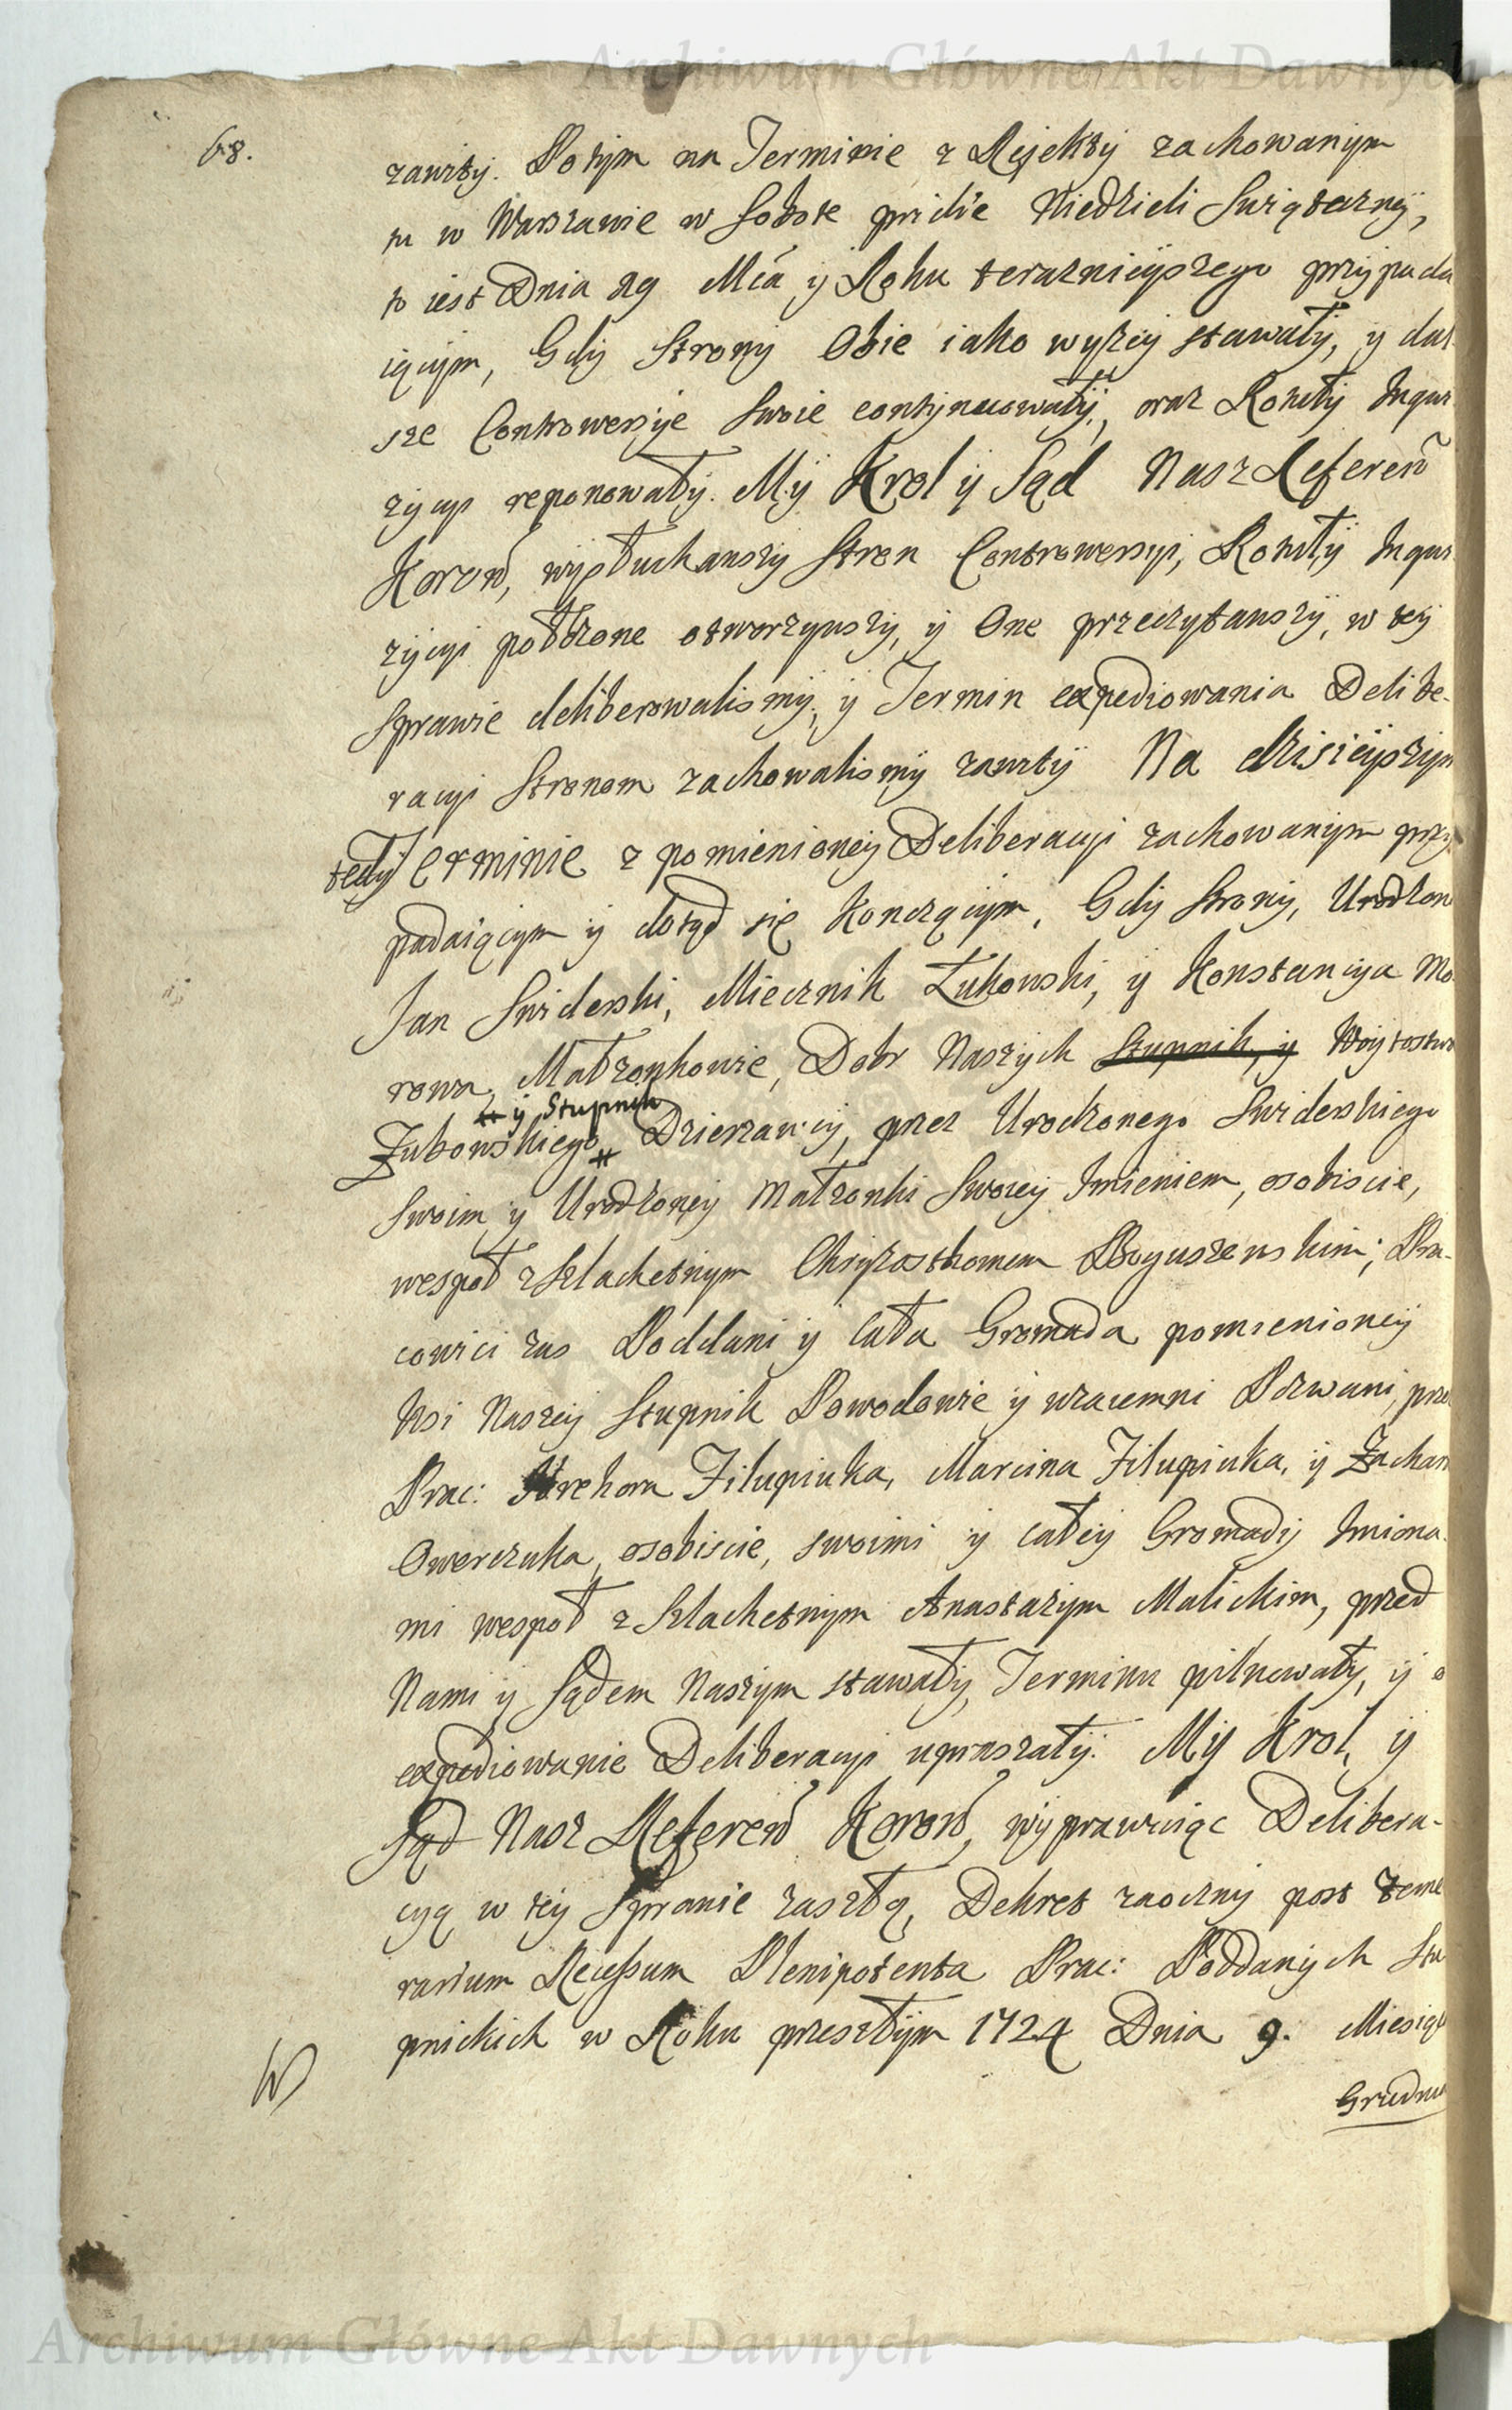 Archiwum Główne Akt Dawnych
68.
zawity. Potym na Terminie z Rejekty zachowanym
tu w Warszawie w Sobote pridie Niedzieli Swiąteczney,
to iest Dnia 29 Mca y Roku teraznieyszego przypada
iącym, Gdy Strony Obie iako wyzey stawały, y dal
sze Controwersye Swoie contynuowały, oraz Rotuły Inqui
zycyi reponowały. My Krol y Sąd Nasz Referen
Koron, wysłuchawszy Stron Controwersyi, Rotuły Inqui
zycyi połozone otworzywszy, y One przeczytawszy, w tey
Sprawie deliberowalismy, y Termin expediowania Delibe-
racyi Stronom zachowalismy zawity Na dzisieyszym
tedy Terminie z pomienioney Deliberacyi zachowanym przy
padaiącym y dotąd się konczącym, Gdy Strony, Urodzon
Jan Swiderski, Miecznik Łukowski, y Konstancya Mo
rowa, Małzonkowie, Dobr Naszych Stupnik, y Woytostwa
# y Stupnik
Zukowskiego # Dzierzawcy, przez Urodzonego Swiderskiego
Swoim y Urodzoney Małzonki Swoiey Imieniem, osobiscie,
wespoł z Szlachetnym Chryzosthomem Boguszewskim; Pra-
cowici zas Poddani y Cała Gromada pomienioney
Wsi Naszey Stupnik Powodowie y wzaiemni Pozwani, prze
Prac: Hrehora Filupiuka, Marcina Filupiuka, y Zachar
Owerczuka, osobiscie, swoimi y całey Gromady Imiona
mi wespoł z Szlachetnym Anastazym Malickim, przed
Nami y Sądem Naszym stawały, Terminu pilnowały, y o
expediowanie Deliberacyi upraszały. My Krol, y
Sąd Nasz Referen Koron, wyprawuiąc Delibera-
cyą w tey Sprawie zaszłą, Dekret zaoczny post teme
rarium Recessum Plenipotenta Prac: Poddanych Stu
pnickich w Roku przeszłym 1724 Dnia 9. Miesiąc
Grudnia
Archiwum Główne Akt Dawnych